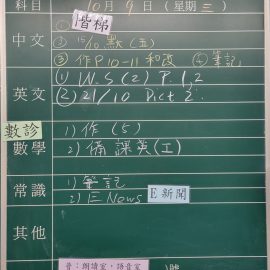 科目 10月9日（星期三）
① 階梯
中文 ② 15/10 默(五)
③ 作P10-11和改 ④ 筆記
英文 (1) W.S(2) P.1,2
(2) 21/10 Dict 2
數診 1) 作(5)
數學 2) 備課英(工)
常識 1) 筆記
2) E News E新聞
其他
普：朗讀室，語音室